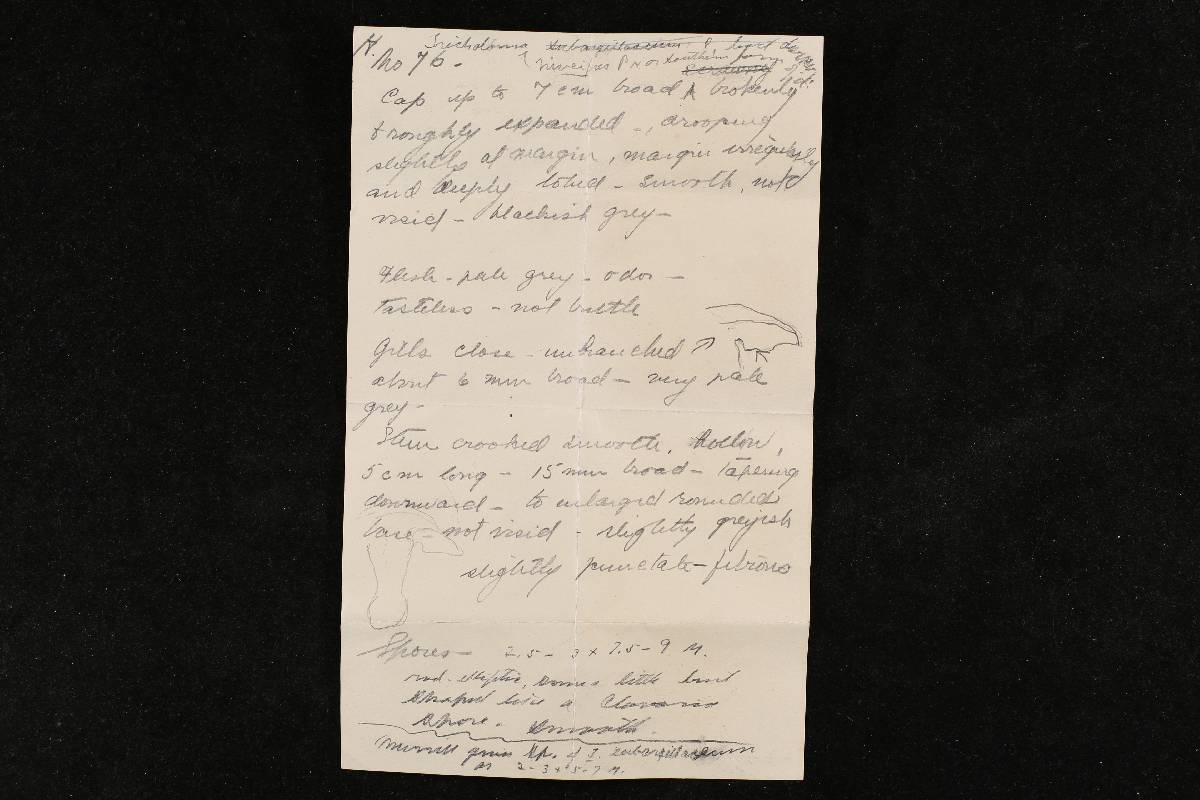 H.
No 76. Tricholoma subargillaceum
niveipes P
Cap up to 7 cm broad, brokenly
& roughly expanded -, drooping
slightly at margin, margin irregularly
and deeply lobed - smooth, not
viscid - blackish grey -
Flesh - pale grey - odor -
tasteless - not brittle
Gills close - unbranched
about 6 mm broad - very pale
grey -
Stem crooked smooth, hollow,
5 cm long - 15 mm broad - tapering
downward - to enlarged rounded
base - not viscid - slightly greyish
slightly punctate-fibrous
Spores - 2.5 - 3 x 7.5 - 9 M.
rod-elliptic, some a little bent
shaped like a
spore. smooth.
Murrill gives sp. of T. subargillaceum
as 2-3 x 5-7 M.